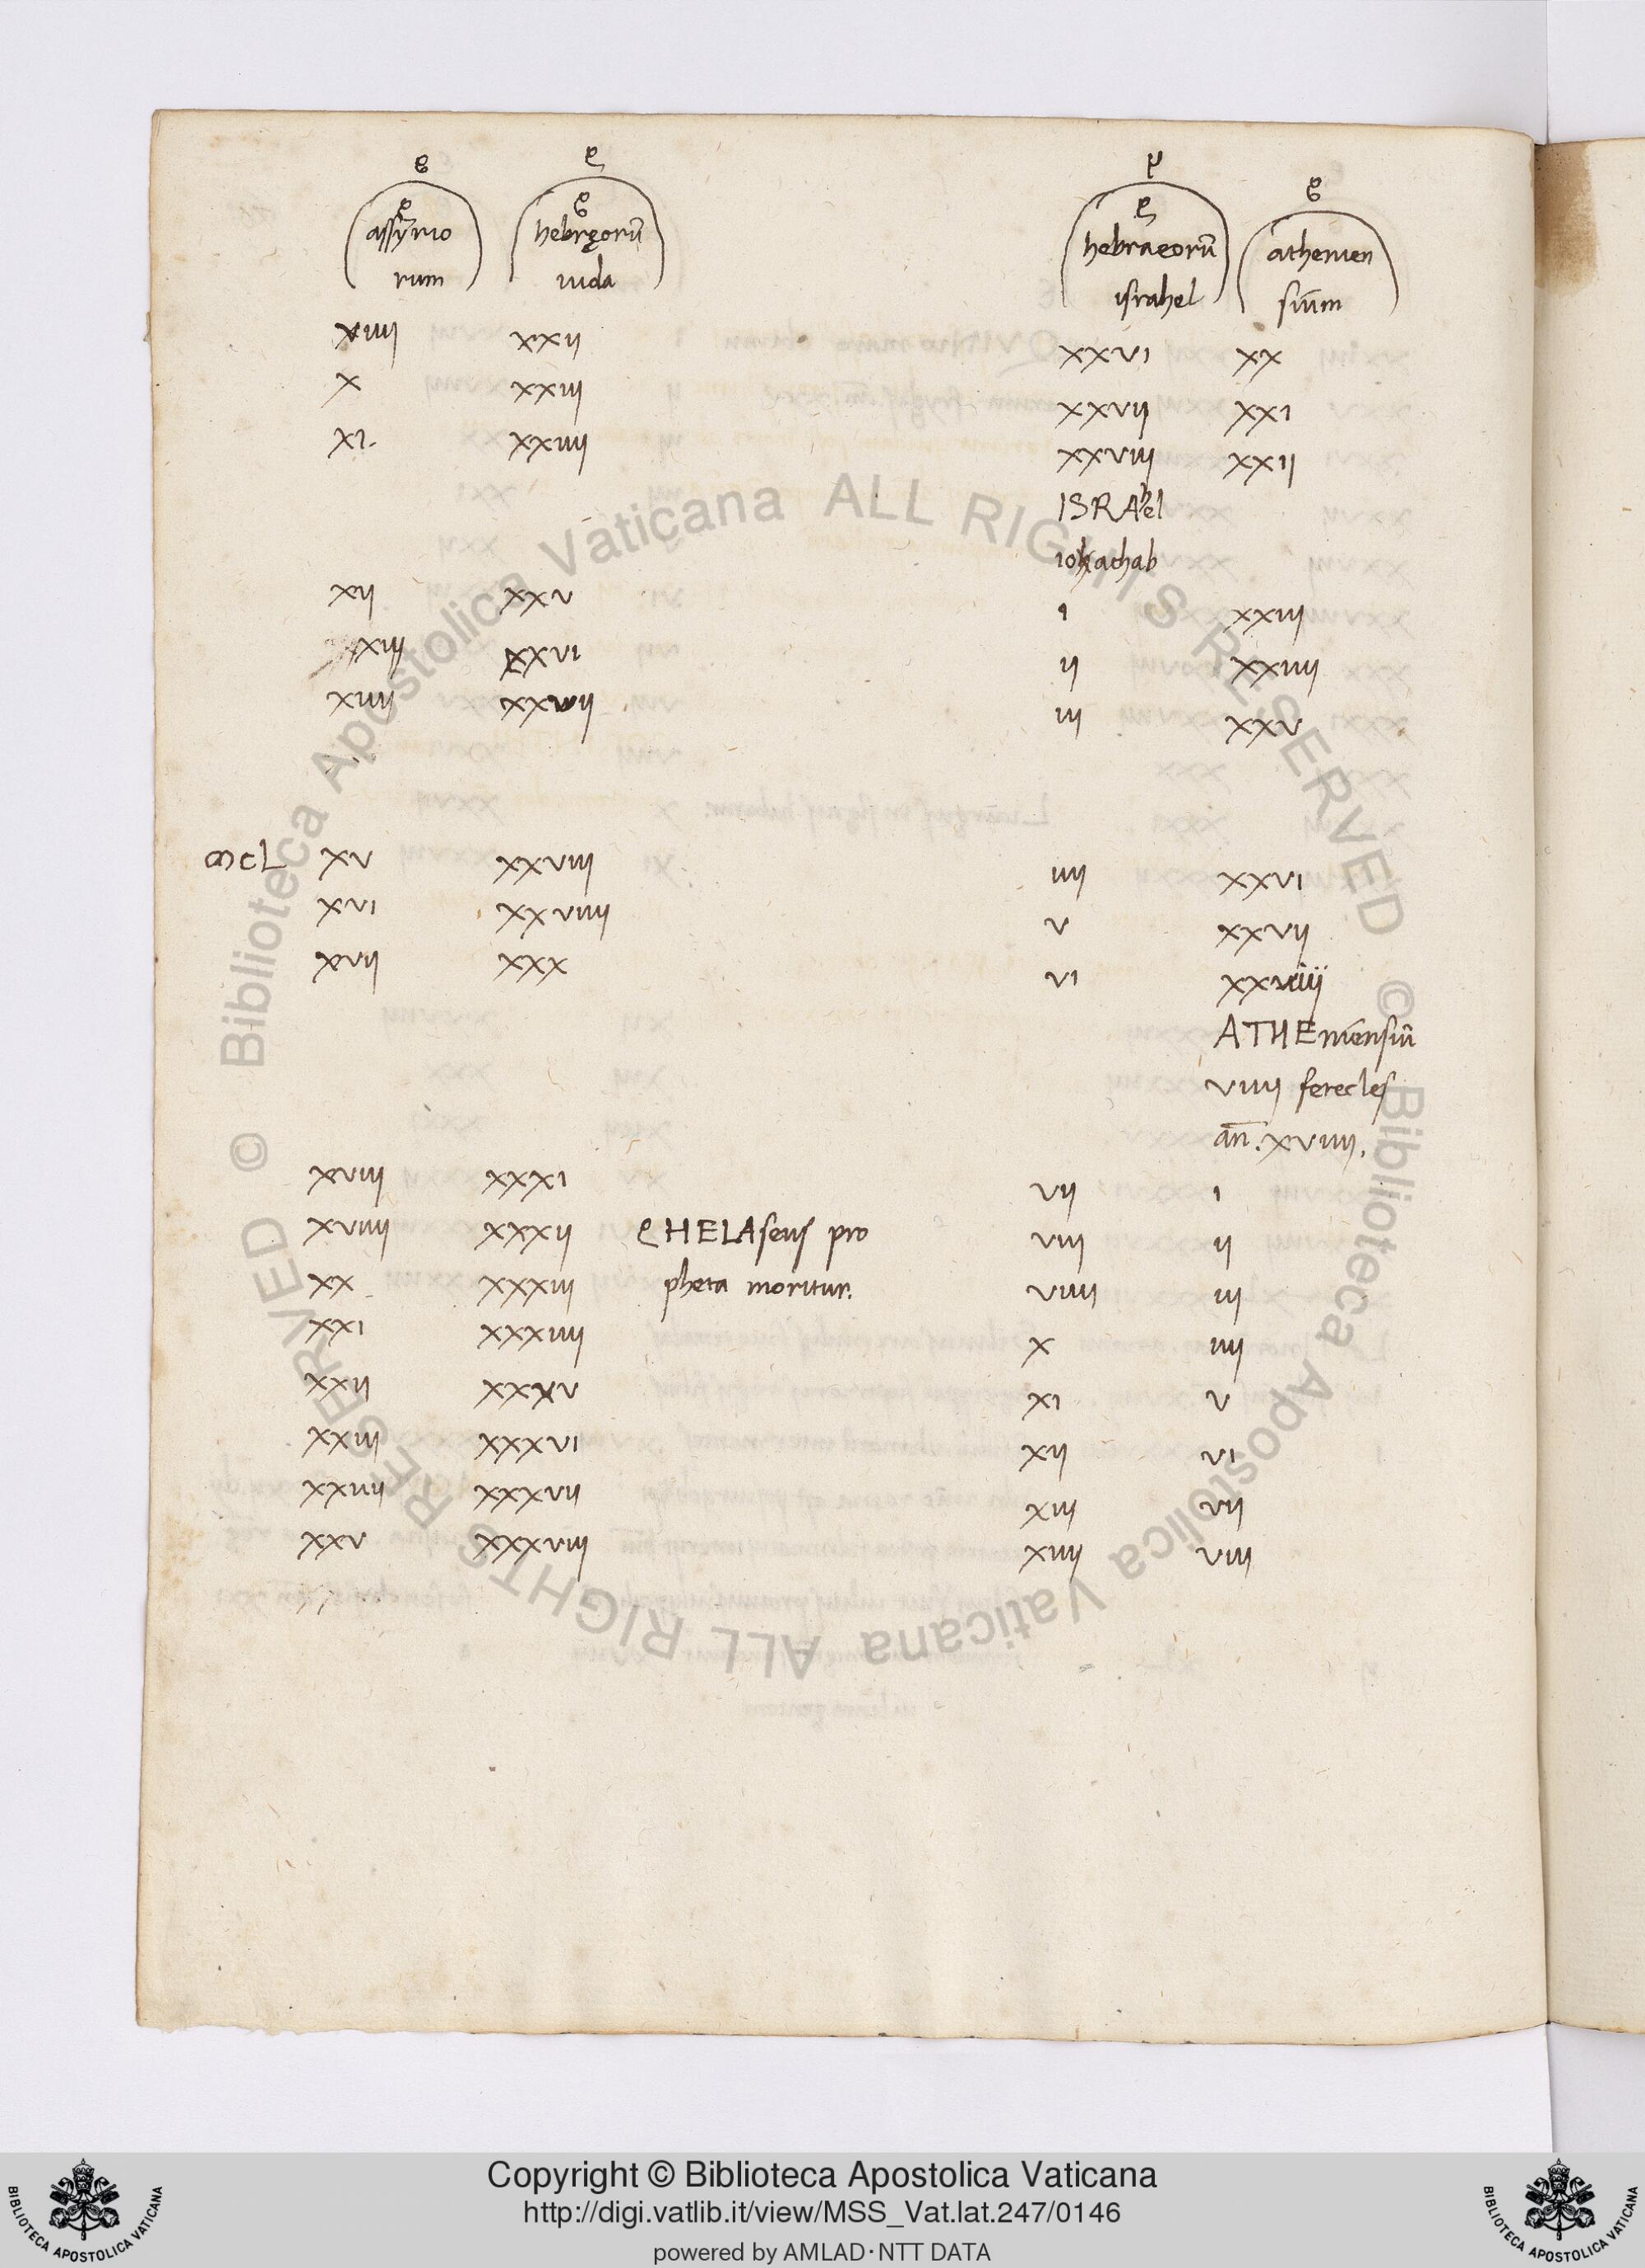 assyrio hebręorū hebraeorū athenien
rum iuda israhel siūm
xiiij xxij xxvi xx
x xxiij xxvij xxi
xi. xxiiij xxviij xxij
ISRAhel
achab
xij xxv i xxiij
xiij xxvi ij xxiiij
xiiij xxvij iij xxv
mcL xv xxviij iiij xxvi
xvi xxviiij v xxvij
xvij xxx vi xxviij
ATHEniensiū
viiij ferecles
an̄. xviiij.
xviij xxxi vij i
xviiij xxxij HELAseus pro viij ij
xx xxxiij pheta moritur. viiij iij
xxi xxxiiij x iiij
xxij xxxv xi v
xxiij xxxvi xij vi
xxiiij xxxvij xiij vij
xxv xxxviij xiiij viij
© Biblioteca Apostolica Vaticana ALL RIGHTS RESERVED © Biblioteca Apostolica Vaticana ALL RIGHTS RESERVED
Copyright © Biblioteca Apostolica Vaticana
http://digi.vatlib.it/view/MSS_Vat.lat.247/0146
powered by AMLAD·NTT DATA
BIBLIOTECA APOSTOLICA VATICANA
BIBLIOTECA APOSTOLICA VATICANA